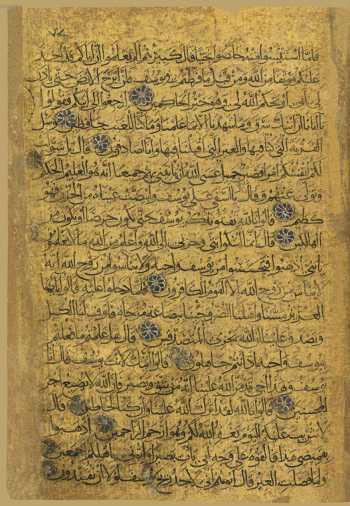 فلما استيسوا منه خلصوا نجيا قال كبيرهم الم تعلموا ان اباكم قد اخذ
عليكم موثقا من الله ومن قبل ما فرطتم في يوسف فلن ابرح الارض حتى ياذن
لي ابي او يحكم الله لي وهو خير الحاكمين ارجعوا الى ابيكم فقولوا
يا ابانا ان ابنك سرق وما شهدنا الا بما علمنا وما كنا للغيب حافظين وسل
القرية التي كنا فيها والعير التي اقبلنا فيها وانا لصادقون قال بل سولت
لكم انفسكم امرا فصبر جميل عسى الله ان ياتيني بهم جميعا انه هو العليم الحكيم
وتولى عنهم وقال يا اسفى على يوسف وابيضت عيناه من الحزن فهو
كظيم قالوا تالله تفتؤ تذكر يوسف حتى تكون حرضا او تكون من
الهالكين قال انما اشكو بثي وحزني الى الله واعلم من الله ما لا تعلمون
يا بني اذهبوا فتحسسوا من يوسف واخيه ولا تايسوا من روح الله انه
لا يايس من روح الله الا القوم الكافرون فلما دخلوا عليه قالوا يا ايها
العزيز مسنا واهلنا الضر وجئنا ببضاعة مزجاة فاوف لنا الكيل
وتصدق علينا ان الله يجزي المتصدقين قال هل علمتم ما فعلتم
بيوسف واخيه اذ انتم جاهلون قالوا ائنك لانت يوسف قال انا
يوسف وهذا اخي قد من الله علينا انه من يتق ويصبر فان الله لا يضيع اجر
المحسنين قالوا تالله لقد اثرك الله علينا وان كنا لخاطئين قال
لا تثريب عليكم اليوم يغفر الله لكم وهو ارحم الراحمين اذهبوا
بقميصي هذا فالقوه على وجه ابي يات بصيرا واتوني باهلكم اجمعين
ولما فصلت العير قال ابوهم اني لاجد ريح يوسف لولا ان تفندون